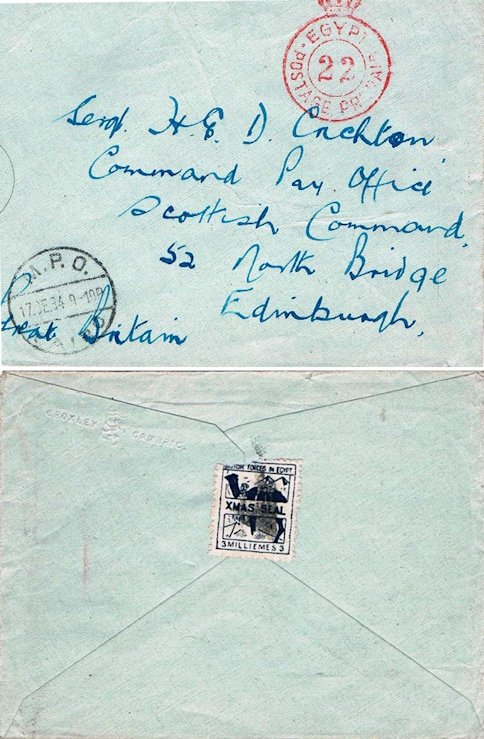 EGYPT
POSTAGE PREPAID
22
Sergt. H. E. D. Crichton,
Command Pay Office
Scottish Command,
52 North Bridge
Edinburgh,
Great Britain
A.P.O.
17.DE.34.9-10P
CROXLEY CAMBRIC
BRITISH FORCES IN EGYPT
XMAS SEAL
3 MILLIEMES 3